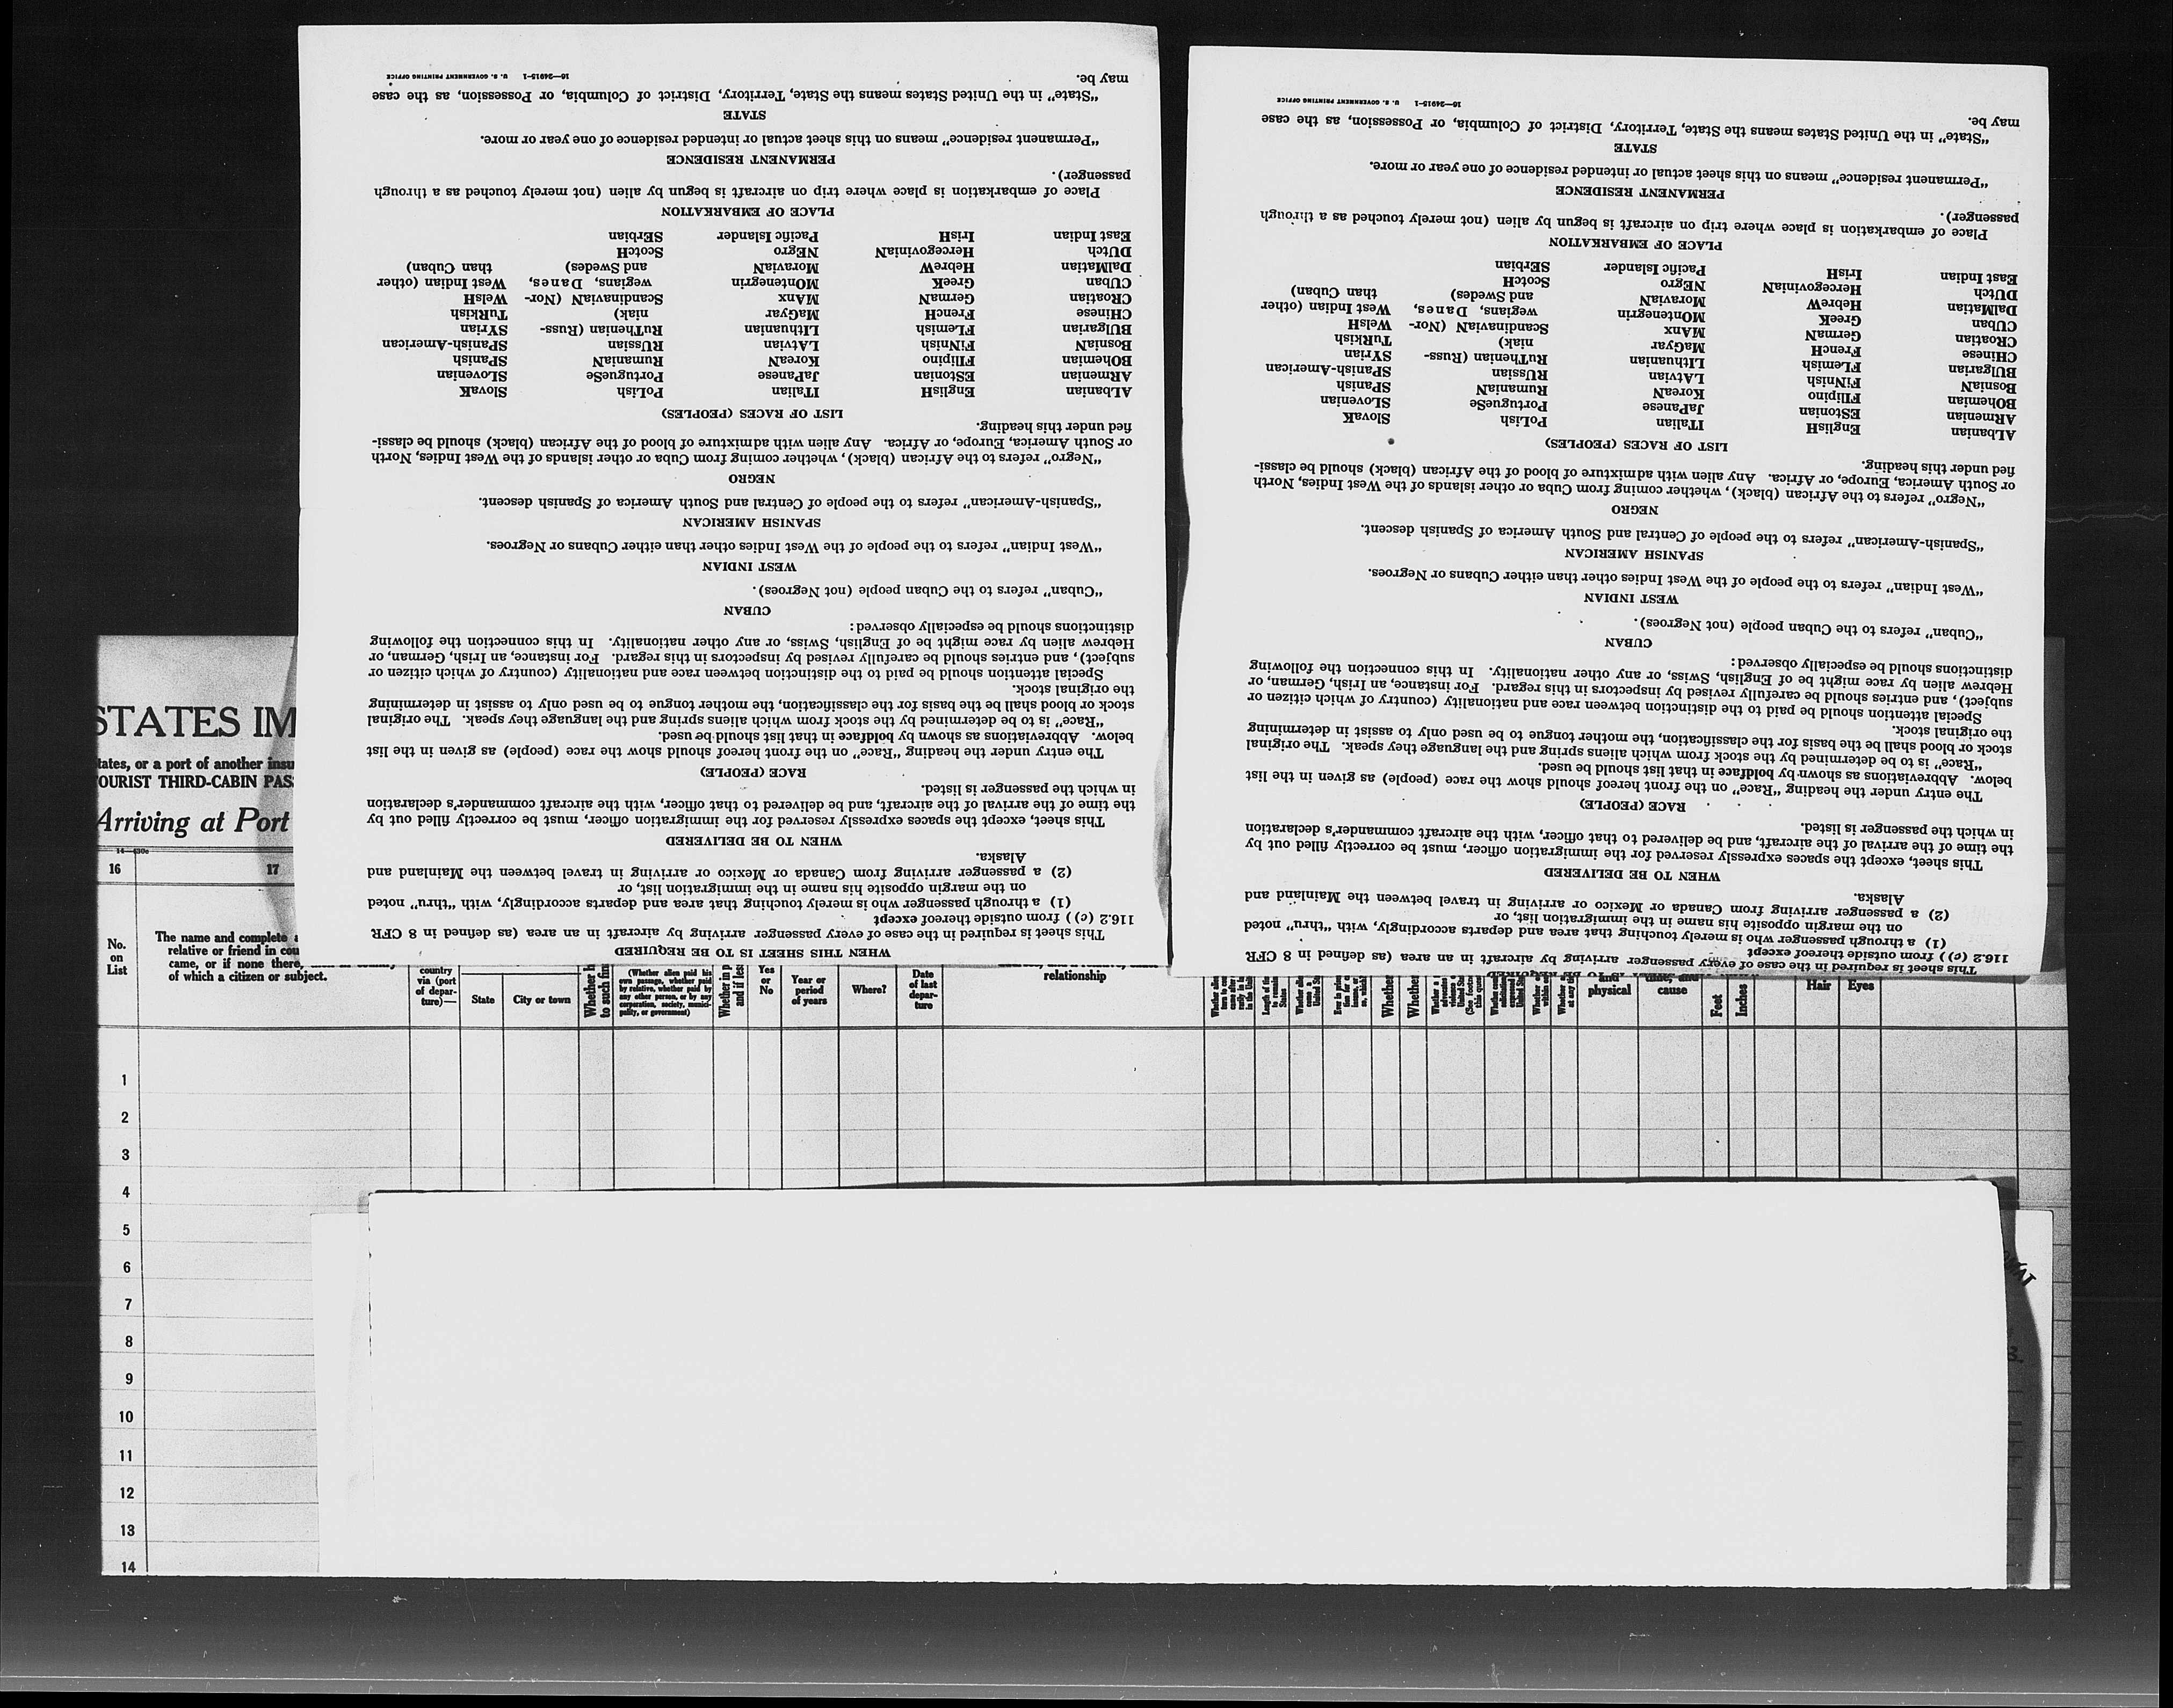 WHEN THIS SHEET IS TO BE REQUIRED
This sheet is required in the case of every passenger arriving by aircraft in an area (as defined in 8 CFR
116.2 (c)) from outside thereof except
(1) a through passenger who is merely touching that area and departs accordingly, with “thru” noted
on the margin opposite his name in the immigration list, or
(2) a passenger arriving from Canada or Mexico or arriving in travel between the Mainland and
Alaska.
WHEN TO BE DELIVERED
This sheet, except the spaces expressly reserved for the immigration officer, must be correctly filled out by
the time of the arrival of the aircraft, and be delivered to that officer, with the aircraft commander’s declaration
in which the passenger is listed.
RACE (PEOPLE)
The entry under the heading “Race” on the front hereof should show the race (people) as given in the list
below. Abbreviations as shown by boldface in that list should be used.
“Race” is to be determined by the stock from which aliens spring and the language they speak. The original
stock or blood shall be the basis for the classification, the mother tongue to be used only to assist in determining
the original stock.
Special attention should be paid to the distinction between race and nationality (country of which citizen or
subject), and entries should be carefully revised by inspectors in this regard. For instance, an Irish, German, or
Hebrew alien by race might be of English, Swiss, or any other nationality. In this connection the following
distinctions should be especially observed:
CUBAN
“Cuban” refers to the Cuban people (not Negroes).
WEST INDIAN
“West Indian” refers to the people of the West Indies other than either Cubans or Negroes.
SPANISH AMERICAN
“Spanish-American” refers to the people of Central and South America of Spanish descent.
NEGRO
“Negro” refers to the African (black), whether coming from Cuba or other islands of the West Indies, North
or South America, Europe, or Africa. Any alien with admixture of blood of the African (black) should be classi-
fied under this heading.
LIST OF RACES (PEOPLES)
ALbanian EnglisH ITalian PoLish SlovaK
ARmenian EStonian JaPanese PortugueSe SLovenian
BOhemian FIlipino KoreaN RumaniaN SPanish
BosniaN FiNnish LAtvian RUssian SPanish-American
BUlgarian FLemish LIthuanian RuThenian (Russ- SYrian
CHinese FrencH MaGyar niak) TurKish
CRoatian GermaN MAnx ScandinaviaN (Nor- WelsH
CUban GreeK MOntenegrin wegians, Danes, West Indian (other
DalMatian HebreW MoraviaN and Swedes) than Cuban)
DUtch HercegoviniaN NEgro ScotcH
East Indian IrisH Pacific Islander SErbian
PLACE OF EMBARKATION
Place of embarkation is place where trip on aircraft is begun by alien (not merely touched as a through
passenger).
PERMANENT RESIDENCE
“Permanent residence” means on this sheet actual or intended residence of one year or more.
STATE
“State” in the United States means the State, Territory, District of Columbia, or Possession, as the case
may be.
16—24915-1 U. S. GOVERNMENT PRINTING OFFICE
This sheet is required in the case of every passenger arriving by aircraft in an area (as defined in 8 CFR
116.2 (c)) from outside thereof except
(1) a through passenger who is merely touching that area and departs accordingly, with “thru” noted
on the margin opposite his name in the immigration list, or
(2) a passenger arriving from Canada or Mexico or arriving in travel between the Mainland and
Alaska.
WHEN TO BE DELIVERED
This sheet, except the spaces expressly reserved for the immigration officer, must be correctly filled out by
the time of the arrival of the aircraft, and be delivered to that officer, with the aircraft commander’s declaration
in which the passenger is listed.
RACE (PEOPLE)
The entry under the heading “Race” on the front hereof should show the race (people) as given in the list
below. Abbreviations as shown by boldface in that list should be used.
“Race” is to be determined by the stock from which aliens spring and the language they speak. The original
stock or blood shall be the basis for the classification, the mother tongue to be used only to assist in determining
the original stock.
Special attention should be paid to the distinction between race and nationality (country of which citizen or
subject), and entries should be carefully revised by inspectors in this regard. For instance, an Irish, German, or
Hebrew alien by race might be of English, Swiss, or any other nationality. In this connection the following
distinctions should be especially observed:
CUBAN
“Cuban” refers to the Cuban people (not Negroes).
WEST INDIAN
“West Indian” refers to the people of the West Indies other than either Cubans or Negroes.
SPANISH AMERICAN
“Spanish-American” refers to the people of Central and South America of Spanish descent.
NEGRO
“Negro” refers to the African (black), whether coming from Cuba or other islands of the West Indies, North
or South America, Europe, or Africa. Any alien with admixture of blood of the African (black) should be classi-
fied under this heading.
LIST OF RACES (PEOPLES)
ALbanian EnglisH ITalian PoLish SlovaK
ARmenian EStonian JaPanese PortugueSe SLovenian
BOhemian FIlipino KoreaN RumaniaN SPanish
BosniaN FiNnish LAtvian RUssian SPanish-American
BUlgarian FLemish LIthuanian RuThenian (Russ- SYrian
CHinese FrencH MaGyar niak) TurKish
CRoatian GermaN MAnx ScandinaviaN (Nor- WelsH
CUban GreeK MOntenegrin wegians, Danes, West Indian (other
DalMatian HebreW MoraviaN and Swedes) than Cuban)
DUtch HercegoviniaN NEgro ScotcH
East Indian IrisH Pacific Islander SErbian
PLACE OF EMBARKATION
Place of embarkation is place where trip on aircraft is begun by alien (not merely touched as a through
passenger).
PERMANENT RESIDENCE
“Permanent residence” means on this sheet actual or intended residence of one year or more.
STATE
“State” in the United States means the State, Territory, District of Columbia, or Possession, as the case
may be.
16—24915-1 U. S. GOVERNMENT PRINTING OFFICE
STATES IM
tates, or a port of another insu
OURIST THIRD-CABIN PAS
Arriving at Port
16 17
No.
on
List
The name and complete a
relative or friend in cou
came, or if none there,
of which a citizen or subject.
country
via (port
of depar-
ture)—
State
City or town
Whether
to such
(Whether alien paid his
own passage, whether paid
by relative, whether paid by
any other person, or by any
corporation, society, munici-
pality, or government)
Whether in p
and if les
Yes
or
No
Year or
period
of years
Where?
Date
of last
depar-
ture
relationship
Whether
Whether
physical
cause
Feet
Inches
Hair
Eyes
1
2
3
4
5
6
7
8
9
10
11
12
13
14